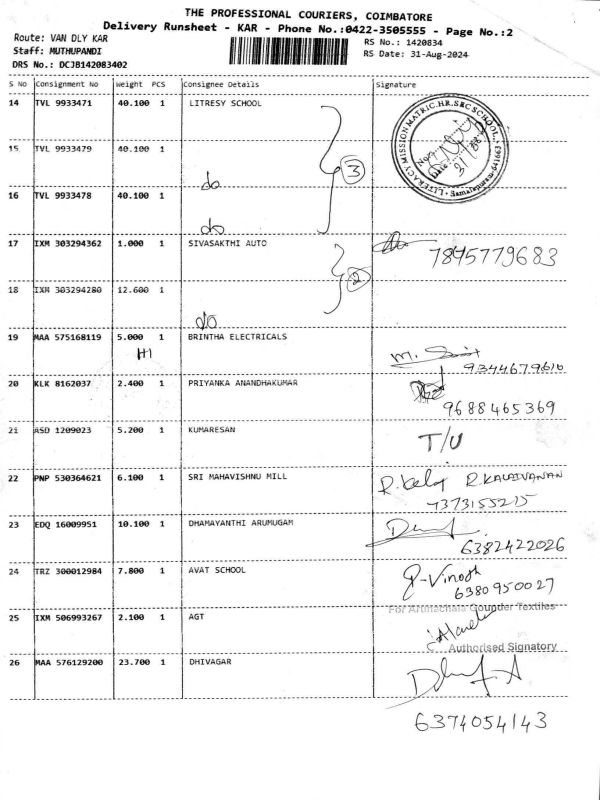 THE PROFESSIONAL COURIERS, COIMBATORE
Delivery Runsheet - KAR - Phone No.:0422-3505555 - Page No.:2
Route: VAN DLY KAR
RS No.: 1420834
Staff: MUTHUPANDI
RS Date: 31-Aug-2024
DRS No.: DCJB142083402
S No Consignment No Weight PCS Consignee Details Signature
14 TVL 9933471 40.100 1 LITRESY SCHOOL
LITERACY MISSION MATRIC.HR.SEC SCHOOL,
Samalapuram-641663
15 TVL 9933479 40.100 1
do
3
16 TVL 9933478 40.100 1
do
17 IXM 303294362 1.000 1 SIVASAKTHI AUTO
7845779683
18 IXM 303294280 12.600 1
2
do
19 MAA 575168119 5.000 1 BRINTHA ELECTRICALS
9344679610
20 KLK 8162037 2.400 1 PRIYANKA ANANDHAKUMAR
9688465369
21 ASD 1209023 5.200 1 KUMARESAN
T/U
22 PNP 530364621 6.100 1 SRI MAHAVISHNU MILL
R.KALAIVANAN
7373155215
23 EDQ 16009951 10.100 1 DHAMAYANTHI ARUMUGAM
6382422026
24 TRZ 300012984 7.800 1 AVAT SCHOOL
P-Vinoth
6380950027
For Arunachala Gounder Textiles
25 IXM 506993267 2.100 1 AGT
Authorised Signatory
26 MAA 576129200 23.700 1 DHIVAGAR
6374054143